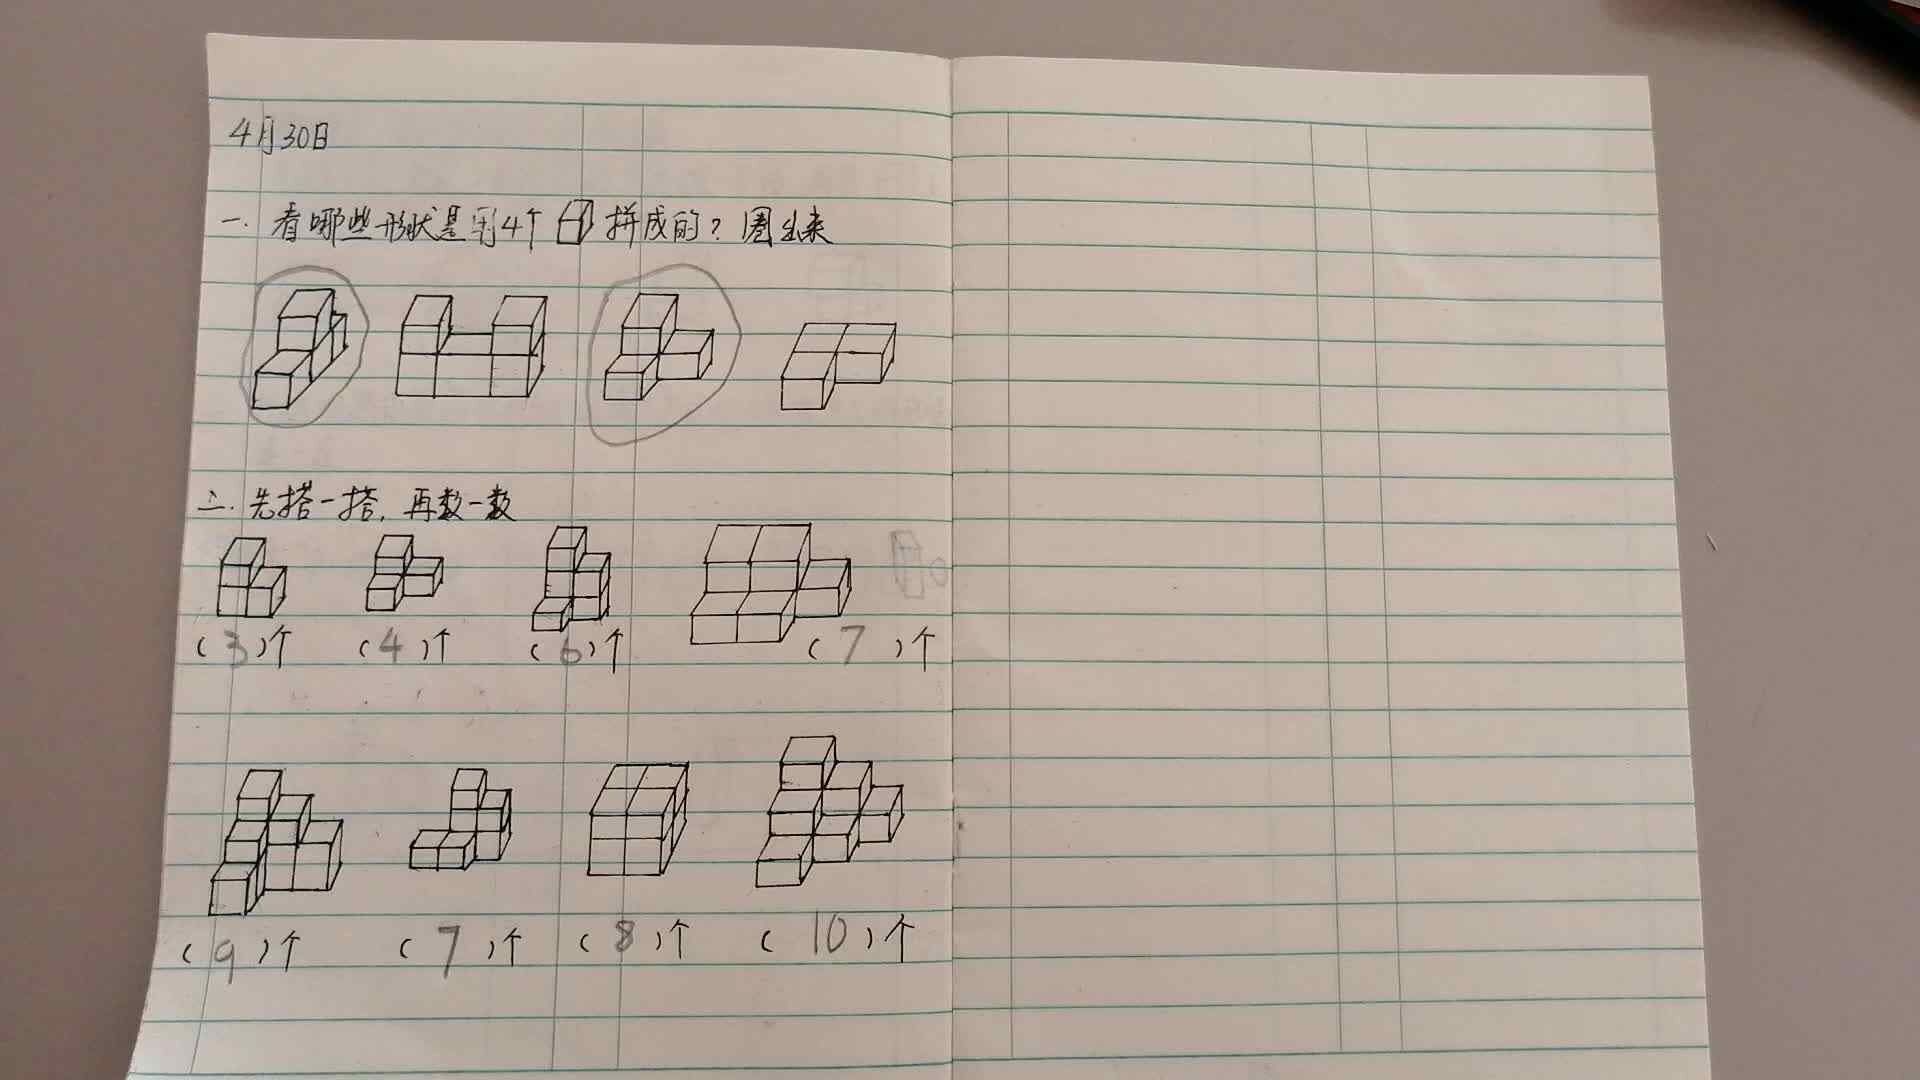 4月30日
一.看哪些形状是用4个拼成的?圈出来
二.先搭一搭,再数一数
(3)个 (4)个 (6)个 (7)个
(9)个 (7)个 (8)个 (10)个